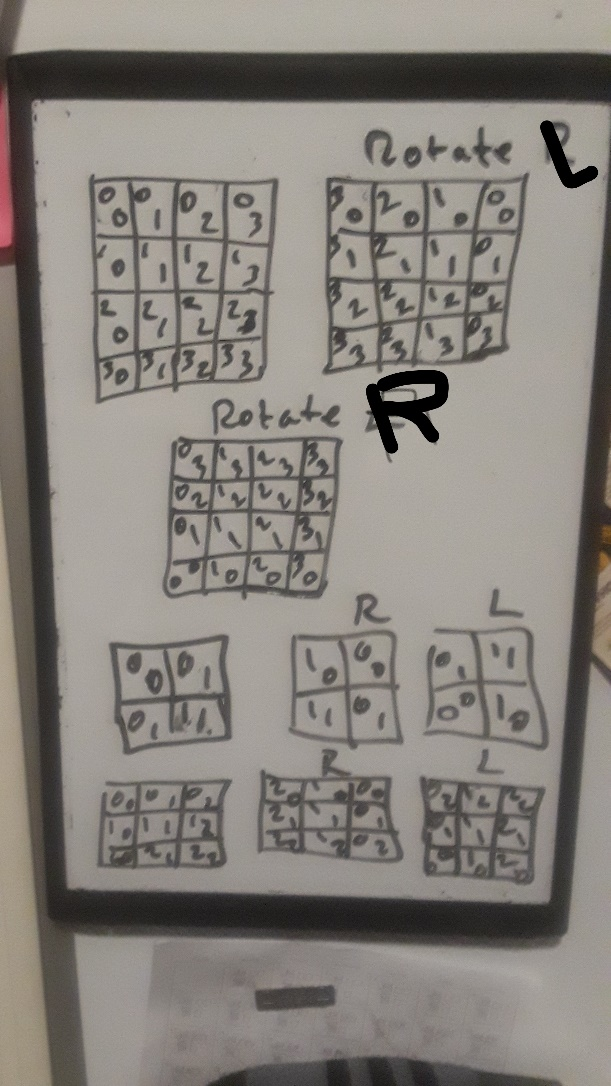 Rotate L
00 01 02 03
10 11 12 13
20 21 22 23
30 31 32 33
30 20 10 00
31 21 11 01
32 22 12 02
33 23 13 03
Rotate R
03 13 23 33
02 12 22 32
01 11 21 31
00 10 20 30
R L
00 01
01 11
10 00
11 01
01 11
00 10
R L
00 01 02
10 11 12
20 21 22
20 10 00
21 11 01
22 12 02
02 12 22
01 11 21
00 10 20